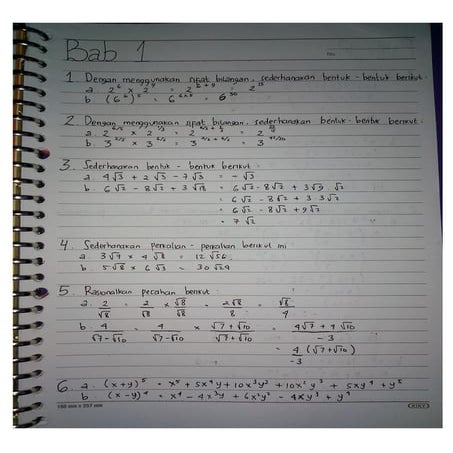 Bab 1
No.
1. Dengan menggunakan sifat bilangan, sederhanakan bentuk - bentuk berikut:
a. 2⁶ × 2⁹ = 2⁶⁺⁹ = 2¹⁵
b. (6⁶)⁵ = 6⁶ˣ⁵ = 6³⁰
2. Dengan menggunakan sifat bilangan, sederhanakan bentuk - bentuk berikut:
3. Sederhanakan bentuk - bentuk berikut:
a. 4√3 + 2√3 - 7√3 = -√3
b. 6√2 - 8√2 + 3√18 = 6√2 - 8√2 + 3√9 . √2
= 6√2 - 8√2 + 3.3√2
= 6√2 - 8√2 + 9√2
= 7√2
4. Sederhanakan perkalian - perkalian berikut ini
a. 3√7 × 4√8 = 12√56
b. 5√8 × 6√3 = 30√24
5. Rasionalkan pecahan berikut:
a. 2/√8 = 2/√8 × √8/√8 = 2√8/8 = √8/4
b. 4/√7-√10 = 4/√7-√10 × √7+√10/√7+√10 = 4√7 + 4√10/-3
= 4/-3 (√7+√10)
6. a. (x+y)⁵ = x⁵ + 5x⁴y + 10x³y² + 10x²y³ + 5xy⁴ + y⁵
b. (x-y)⁴ = x⁴ - 4x³y + 6x²y² - 4xy³ + y⁴
KIKY